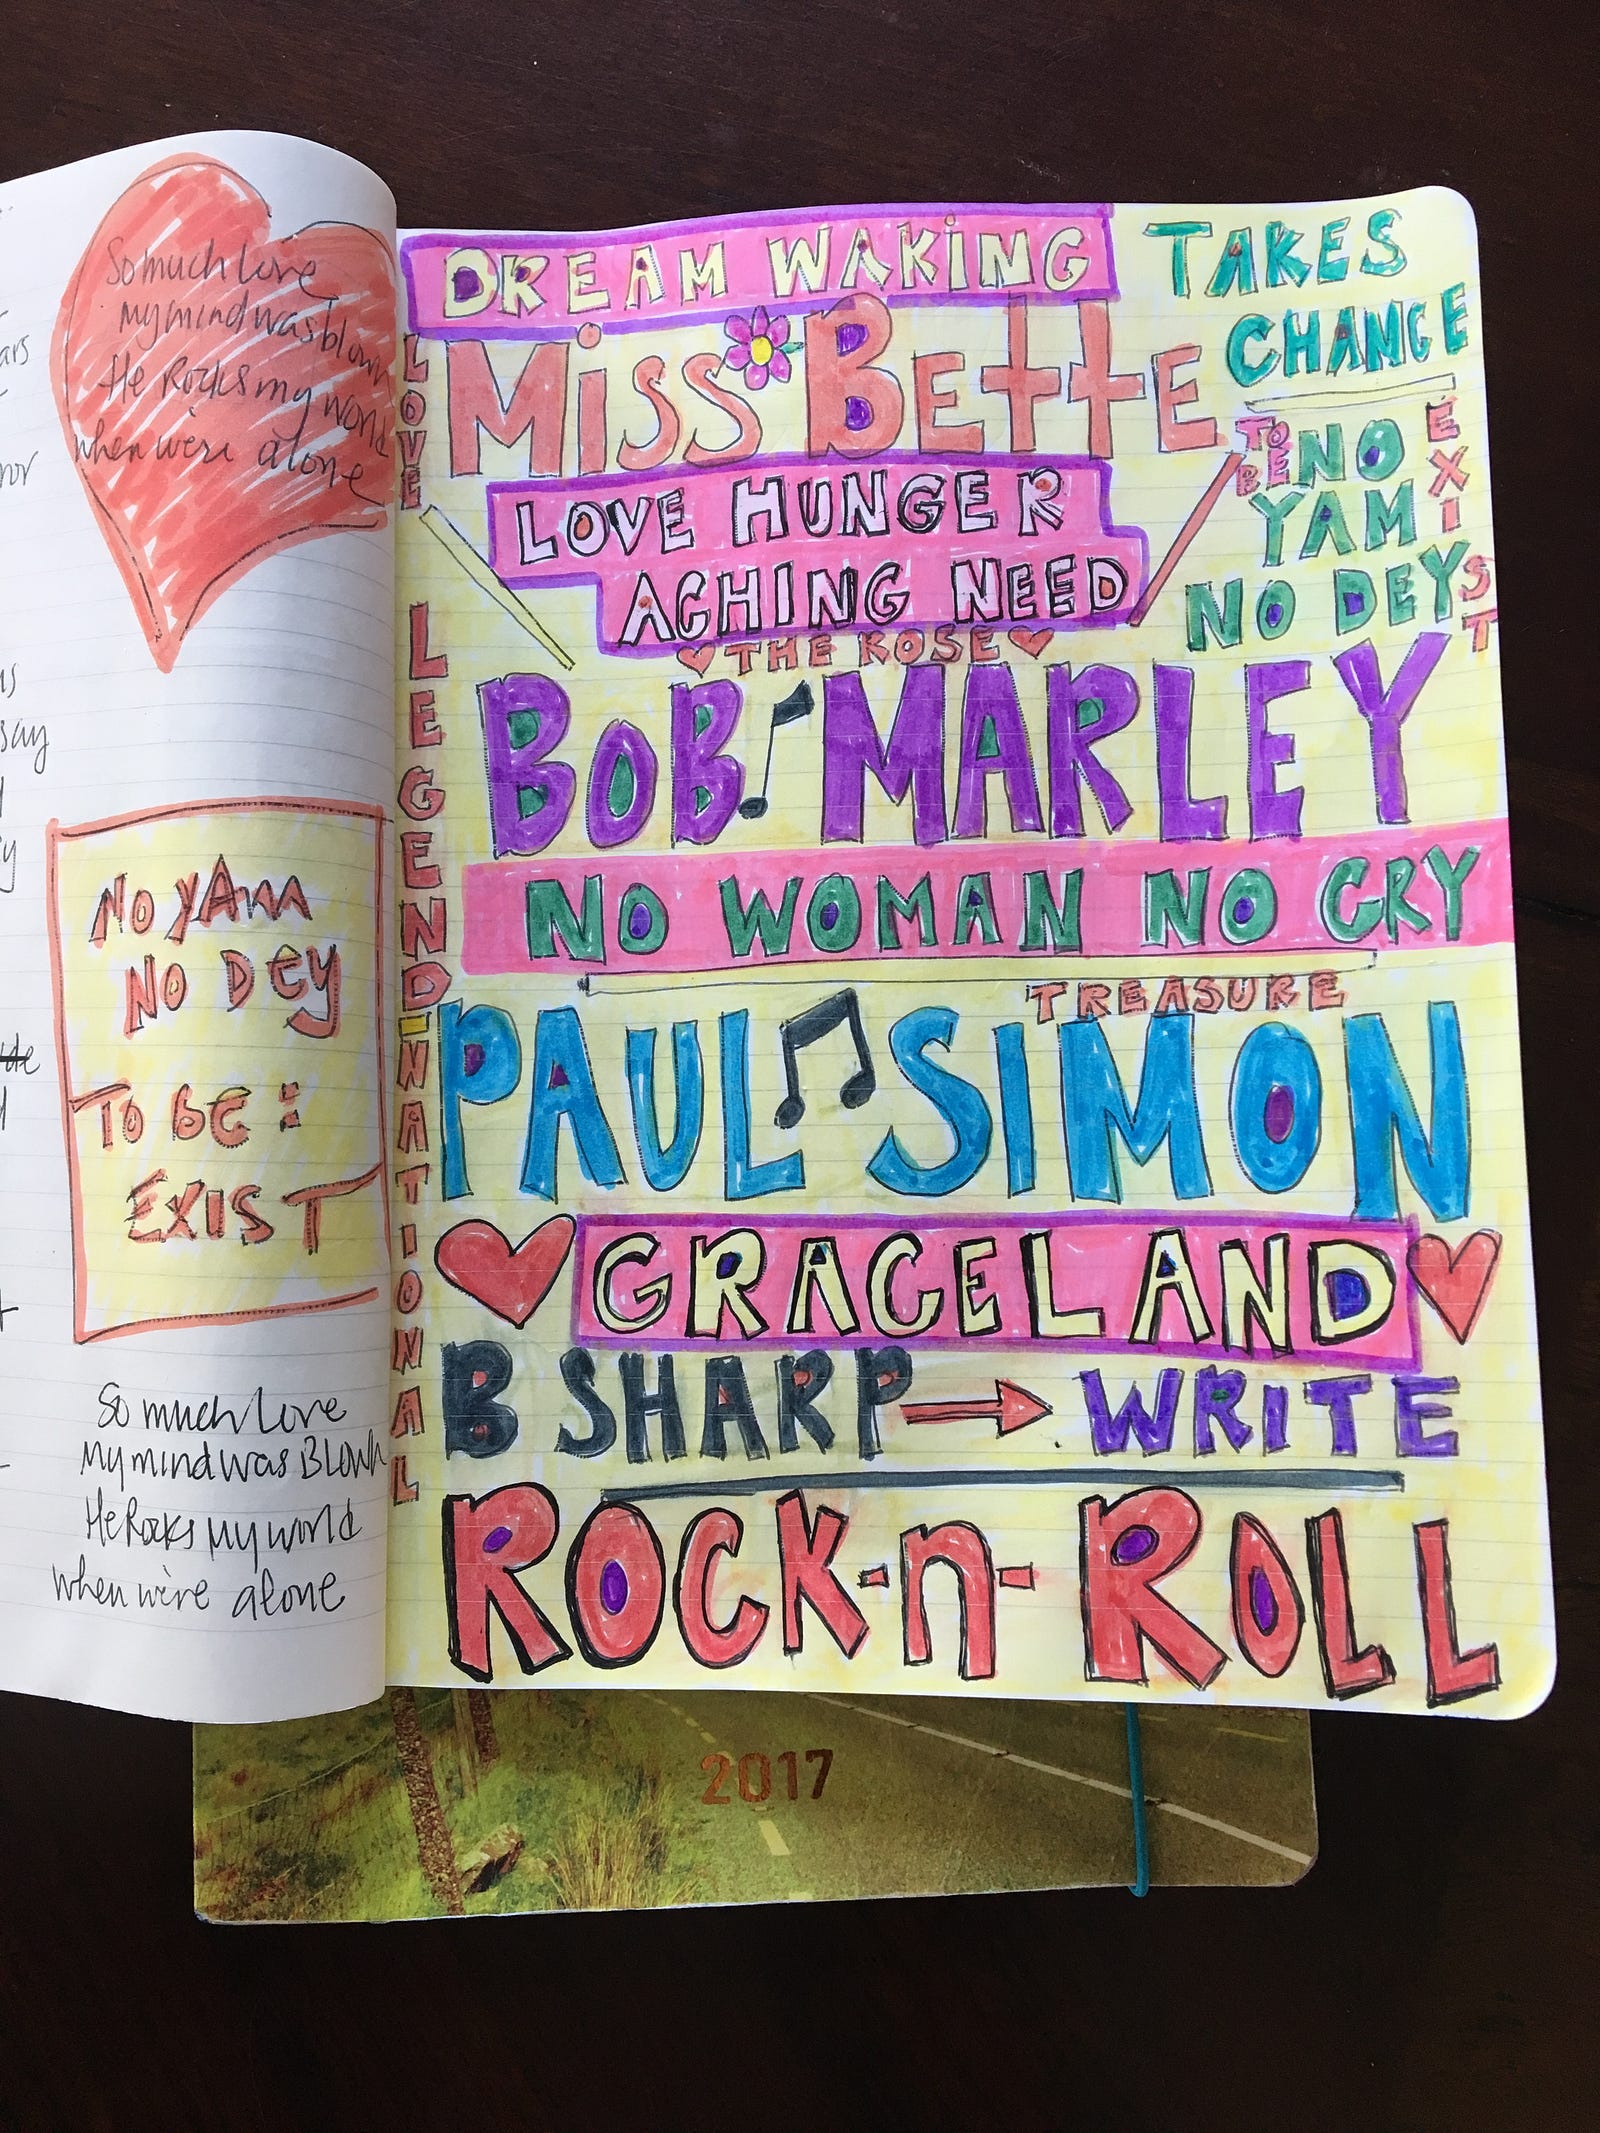 So much love
my mind was blown
He Rocks my world
when we're alone
NO YAM
NO DEY
TO BE:
EXIST
So much love
My mind was BLOWN
He Rocks My world
when we're alone
say
LOVE
LEGEND-NATIONAL
DREAM WAKING
TAKES
CHANCE
MISS BETTE
TO BE
EXIST
NO
YAM
NO DEY
LOVE HUNGER
ACHING NEED
THE ROSE
BOB MARLEY
NO WOMAN NO CRY
TREASURE
PAUL SIMON
GRACELAND
B SHARP → WRITE
ROCK-n-ROLL
2017